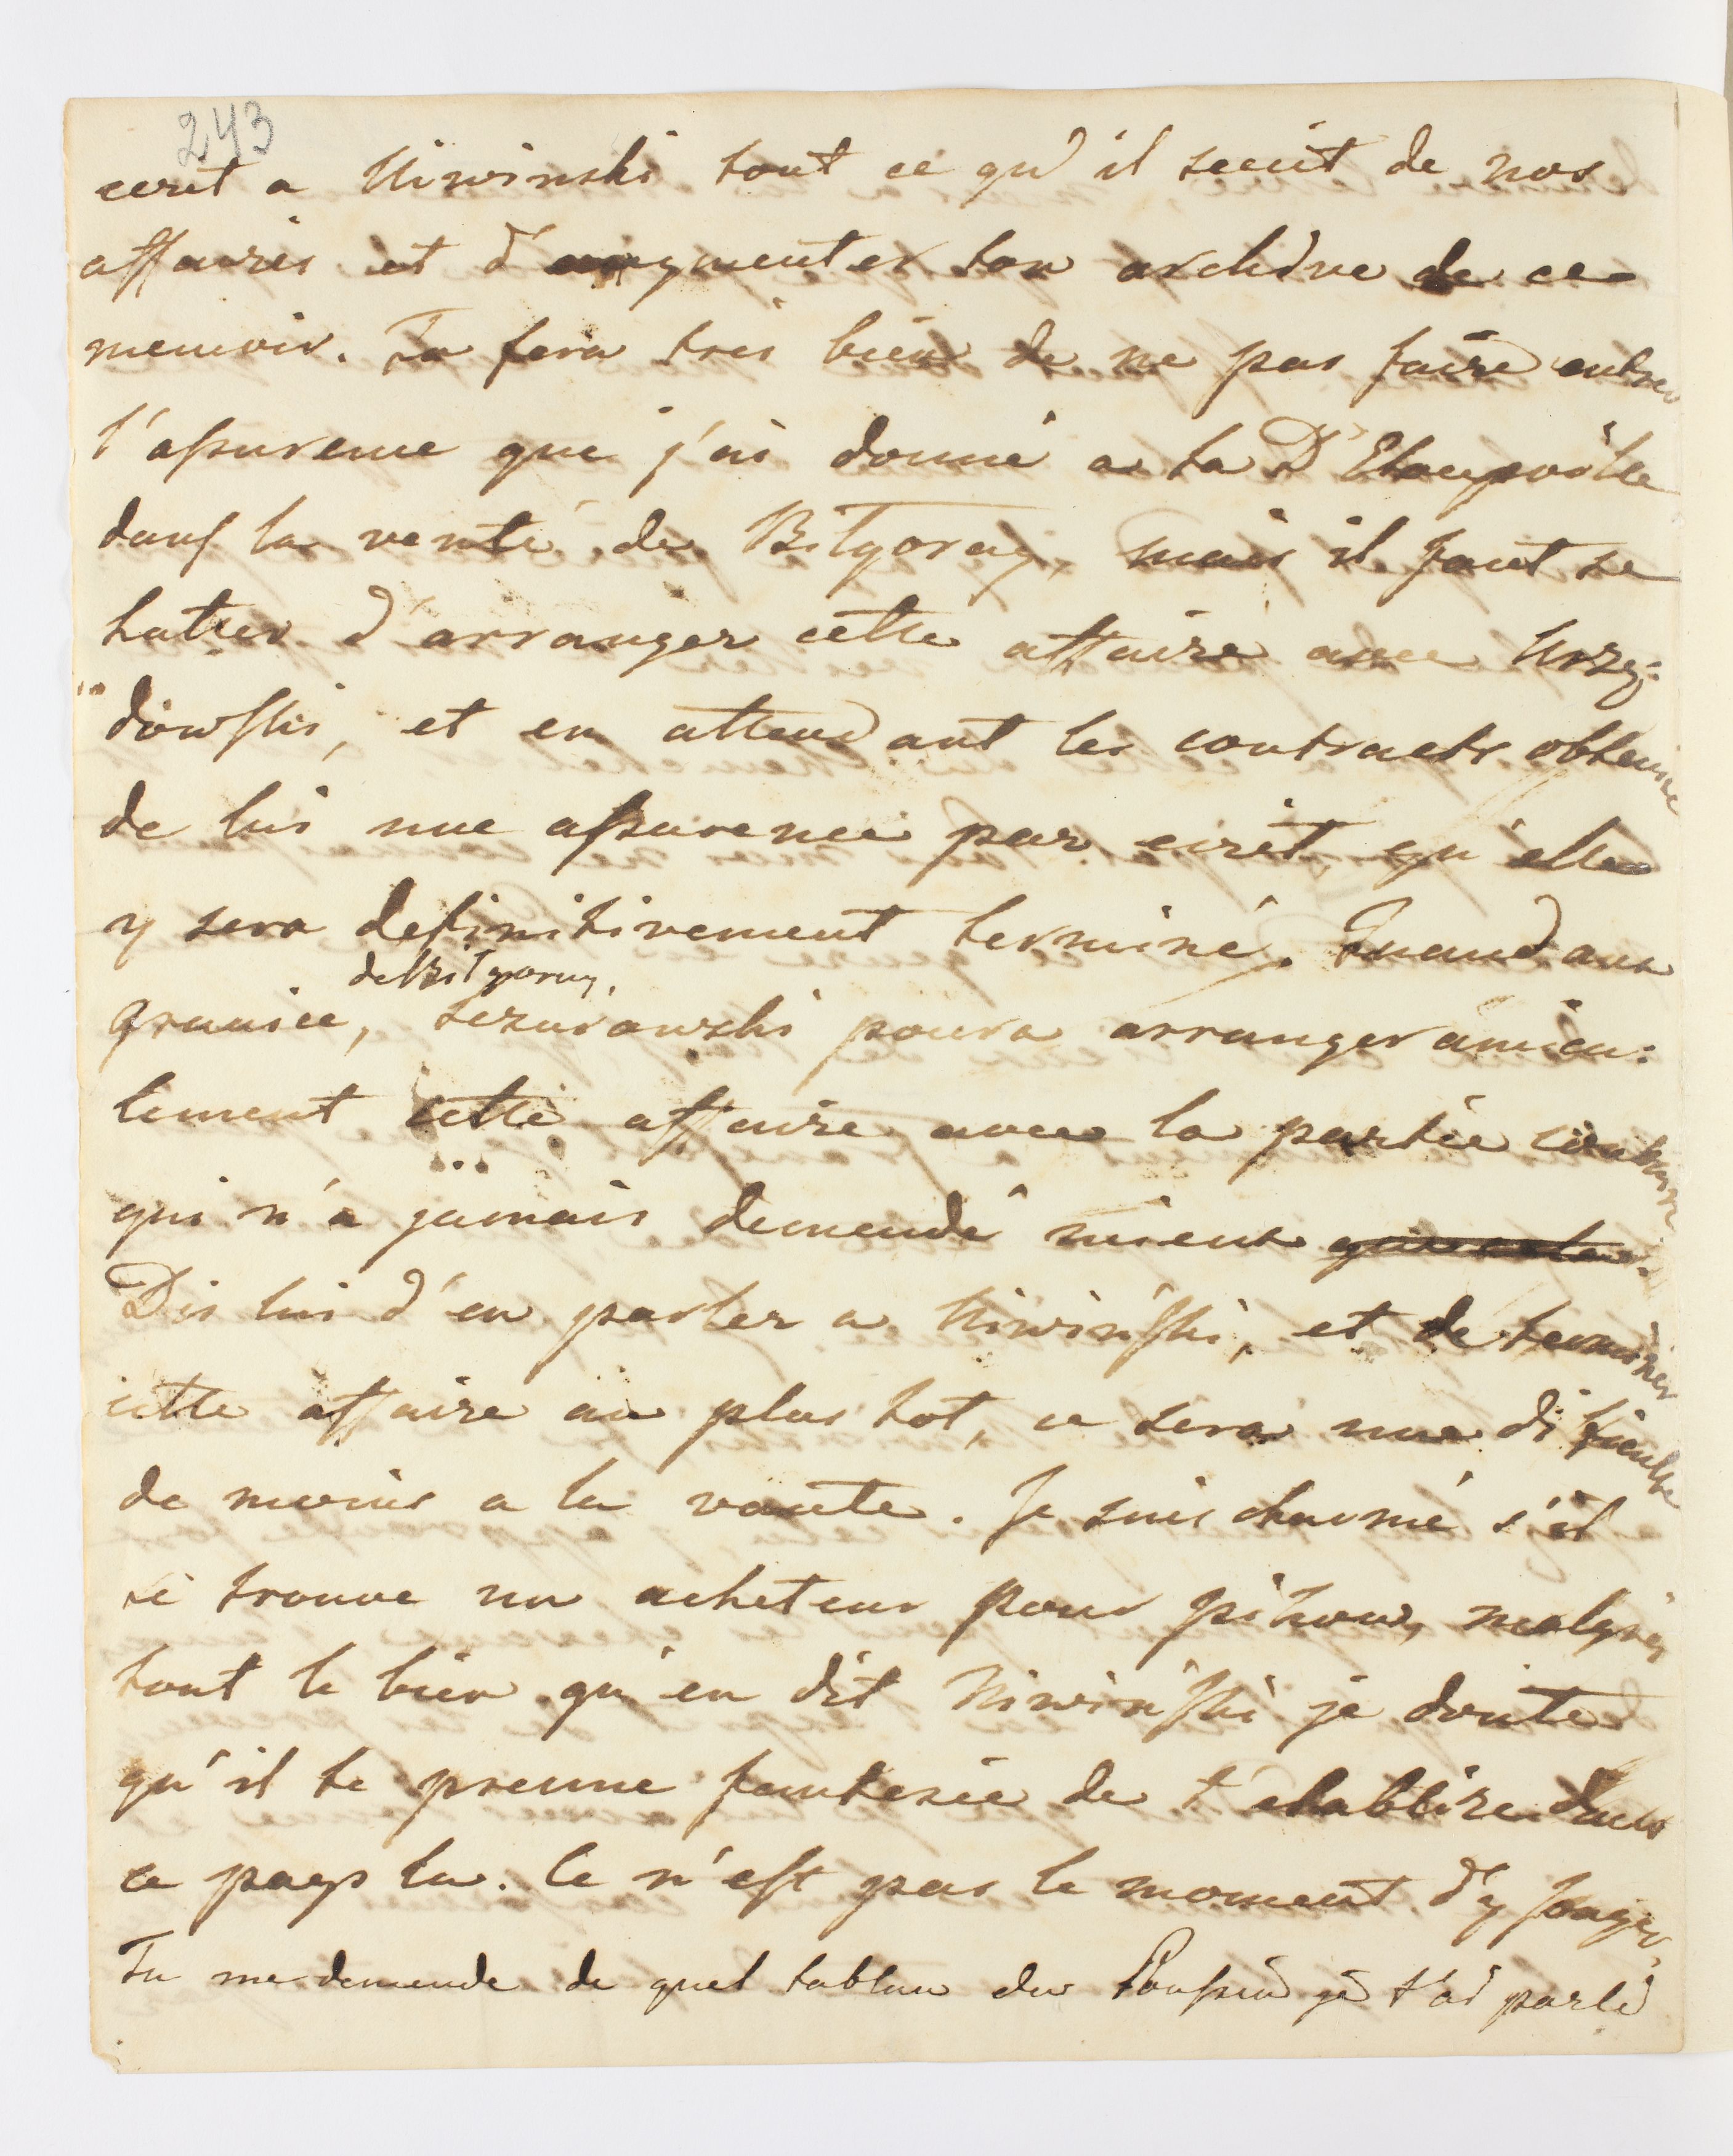 243
ecrit a Niwinski tout ce qu'il scait de nos
affaires et d'augmenter ton archive de ce
memoir. Tu fera tres bien de ne pas faire entrer
l'assurence que j'ai donné a ta
dans la vente de Bilgoray, mais il faut se
hatter d'arranger cette affaire avec Urzę:
dowski, et en attendant les contracts obtenir
de lui une assurence par ecrit qu'elle
y sera definitivement terminé. Quand aux
de Bilgoray,
granice, poura arranger amica:
lement cette affaire avec la partie
qui n'a jamais demendé mieux que cela.
Dis lui d'en parler a Niwinski, et de terminer
cette affaire au plus tot, ce sera une dificulte
de moins a la vante. Je suis charmé s'il
se trouve un acheteur pour malgré
tout le bien qu'en dit Niwinski je doute
qu'il te prenne fantesie de t'etablire dans
ce pays la. Ce n'est pas le moment d'y songer,
Tu me demende de quel tablau du Poussin je t'ai parlé